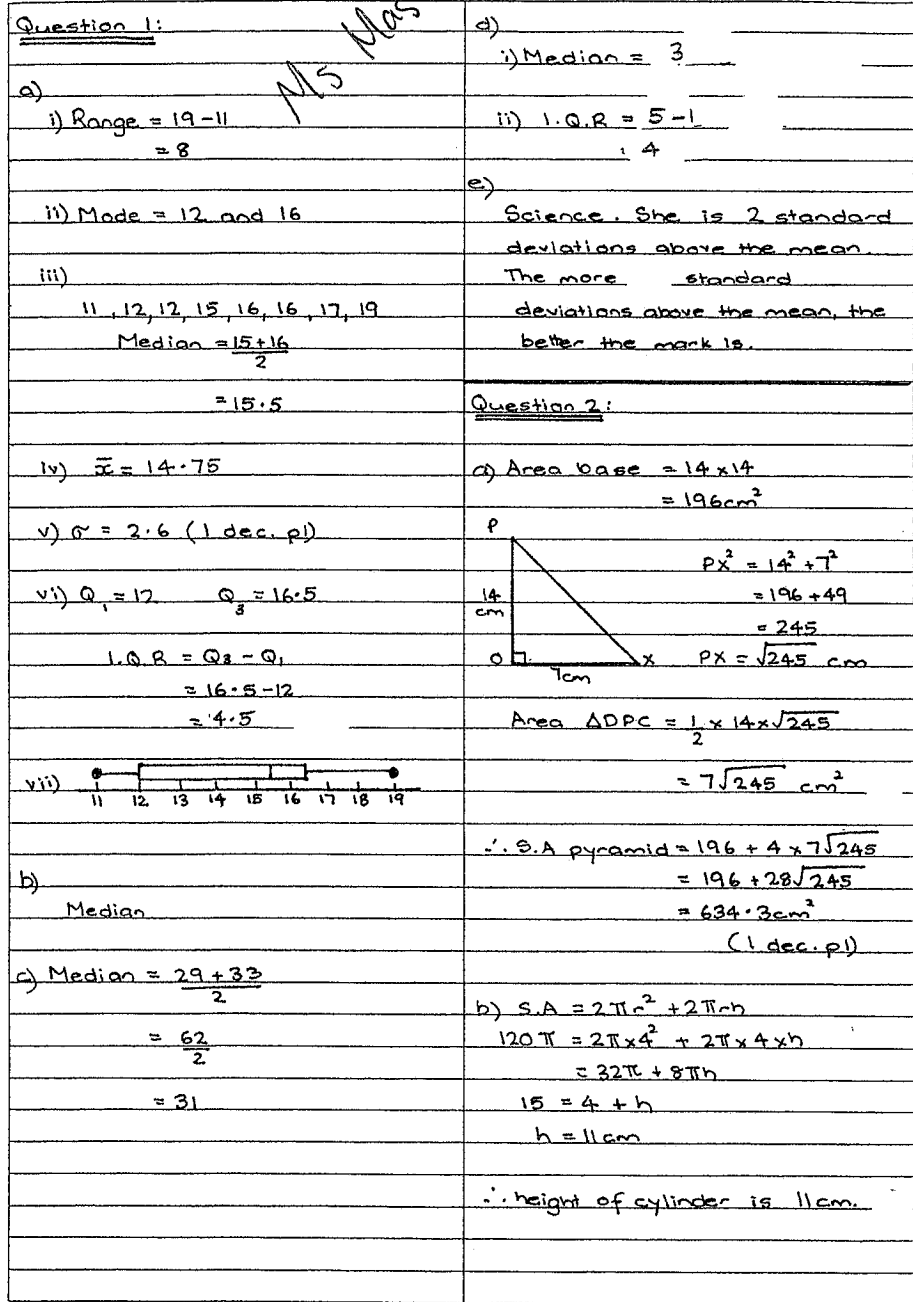 Question 1:
Ms Mas
a)
i) Range = 19 - 11
= 8
ii) Mode = 12 and 16
iii)
11, 12, 12, 15, 16, 16, 17, 19
Median = 15+16
2
= 15.5
iv) x̄ = 14.75
v) σ = 2.6 (1 dec. pl)
vi) Q₁ = 12 Q₃ = 16.5
I.Q.R = Q₃ - Q₁
= 16.5 - 12
= 4.5
vii)
11 12 13 14 15 16 17 18 19
b)
Median
c) Median = 29 + 33
2
= 62
2
= 31
d)
i) Median = 3
ii) I.Q.R = 5 - 1
: 4
e)
Science. She is 2 standard
deviations above the mean.
The more standard
deviations above the mean, the
better the mark is.
Question 2:
a) Area base = 14 x 14
= 196cm²
P
14
cm
O
7cm
X
PX² = 14² + 7²
= 196 + 49
= 245
PX = √245 cm
Area ΔDPC = 1 x 14 x √245
2
= 7√245 cm²
∴ S.A pyramid = 196 + 4 x 7√245
= 196 + 28√245
= 634.3cm²
(1 dec. pl)
b) S.A = 2πr² + 2πrh
120π = 2π x 4² + 2π x 4 x h
= 32π + 8πh
15 = 4 + h
h = 11cm
∴ height of cylinder is 11cm.